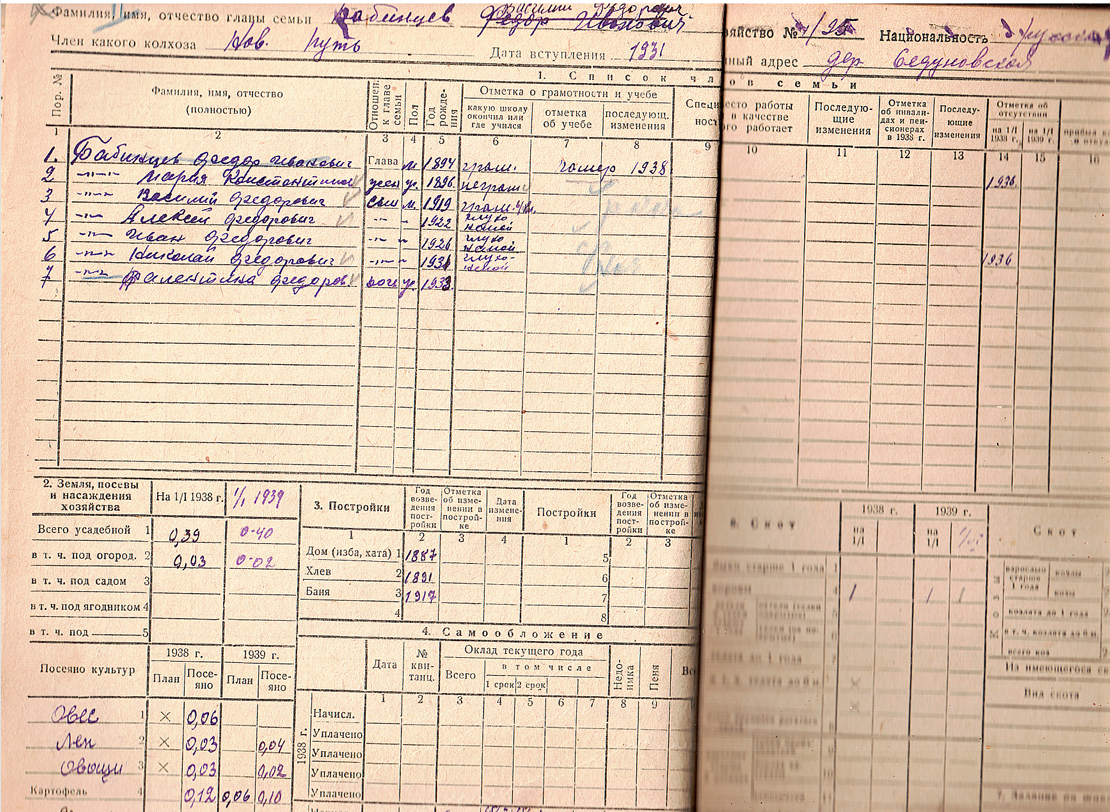 Фамилия, имя, отчество главы семьи Бабинцев Федор Иванович Василий Федорович
Член какого колхоза Нов. Путь Дата вступления 1931
яйство № 4/95 Национальность
ный адрес дер Седуновская
1. Список чл
ов семьи
Пор. №
Фамилия, имя, отчество (полностью)
Отношен. к главе семьи
Пол
Год рождения
Отметка о грамотности и учебе
какую школу окончил или где учился
отметка об учебе
последующ. изменения
Специ
ност
есто работы
в качестве
го работает
Последующие изменения
Отметка об инвалидах и пенсионерах в 1938 г.
Последующие изменения
Отметка об отсутствии
на 1/I 1938 г.
на 1/I 1939 г.
1 2 3 4 5 6 7 8 9 10 11 12 13 14 15
1. Бабинцев Федор Иванович Глава м 1894 грам. помер 1938
2 -"- Мария Константинов жен ж. 1896 неграм 1936
3 -"- Василий Федорович сын м. 1919 грам.
4 -"- Алексей Федорович -"- " 1922 глухонемой
5 -"- Иван Федорович -"- " 1926 глухонемой
6 -"- Николай Федорович -"- " 1931 глухонемой 1936
7 -"- Валентина Федоров дочь ж. 1933
2. Земля, посевы и насаждения хозяйства
На 1/I 1938 г. 1/1 1939
Всего усадебной 1 0,39 0-40
в т. ч. под огород. 2 0,03 0-02
в т. ч. под садом 3
в т. ч. под ягодником 4
в т. ч. под 5
Посеяно культур
1938 г. 1939 г.
План Посеяно План Посеяно
Овес 1 × 0,06
Лен 2 × 0,03 0,04
Овощи 3 × 0,03 0,02
Картофель 4 0,12 0,06 0,10
3. Постройки
Год возведения постройки
Отметка об изменении в постройке
Дата изменения
Постройки
Год возведения постройки
Отметка об изменении в постройке
1 2 3 4 1 2 3
Дом (изба, хата) 1 1887 5
Хлев 2 1891 6
Баня 3 1917 7
4 8
4. Самообложение
Дата
№ квитанц.
Оклад текущего года
Всего
в том числе
1 срок 2 срок
Недоимка
Пеня
1 2 3 4 5 6 7 8 9
1938 г.
Начисл.
Уплачено
Уплачено
Уплачено
Уплачено
6. Скот
1938 г. 1939 г.
на 1/I на 1/I
Скот
Козы
взрослые старше 1 года
козлы
козы
козлята до 1 года
в т. ч. козлята до 6 м.
всего коз
Из имеющегося ск
Вид скота